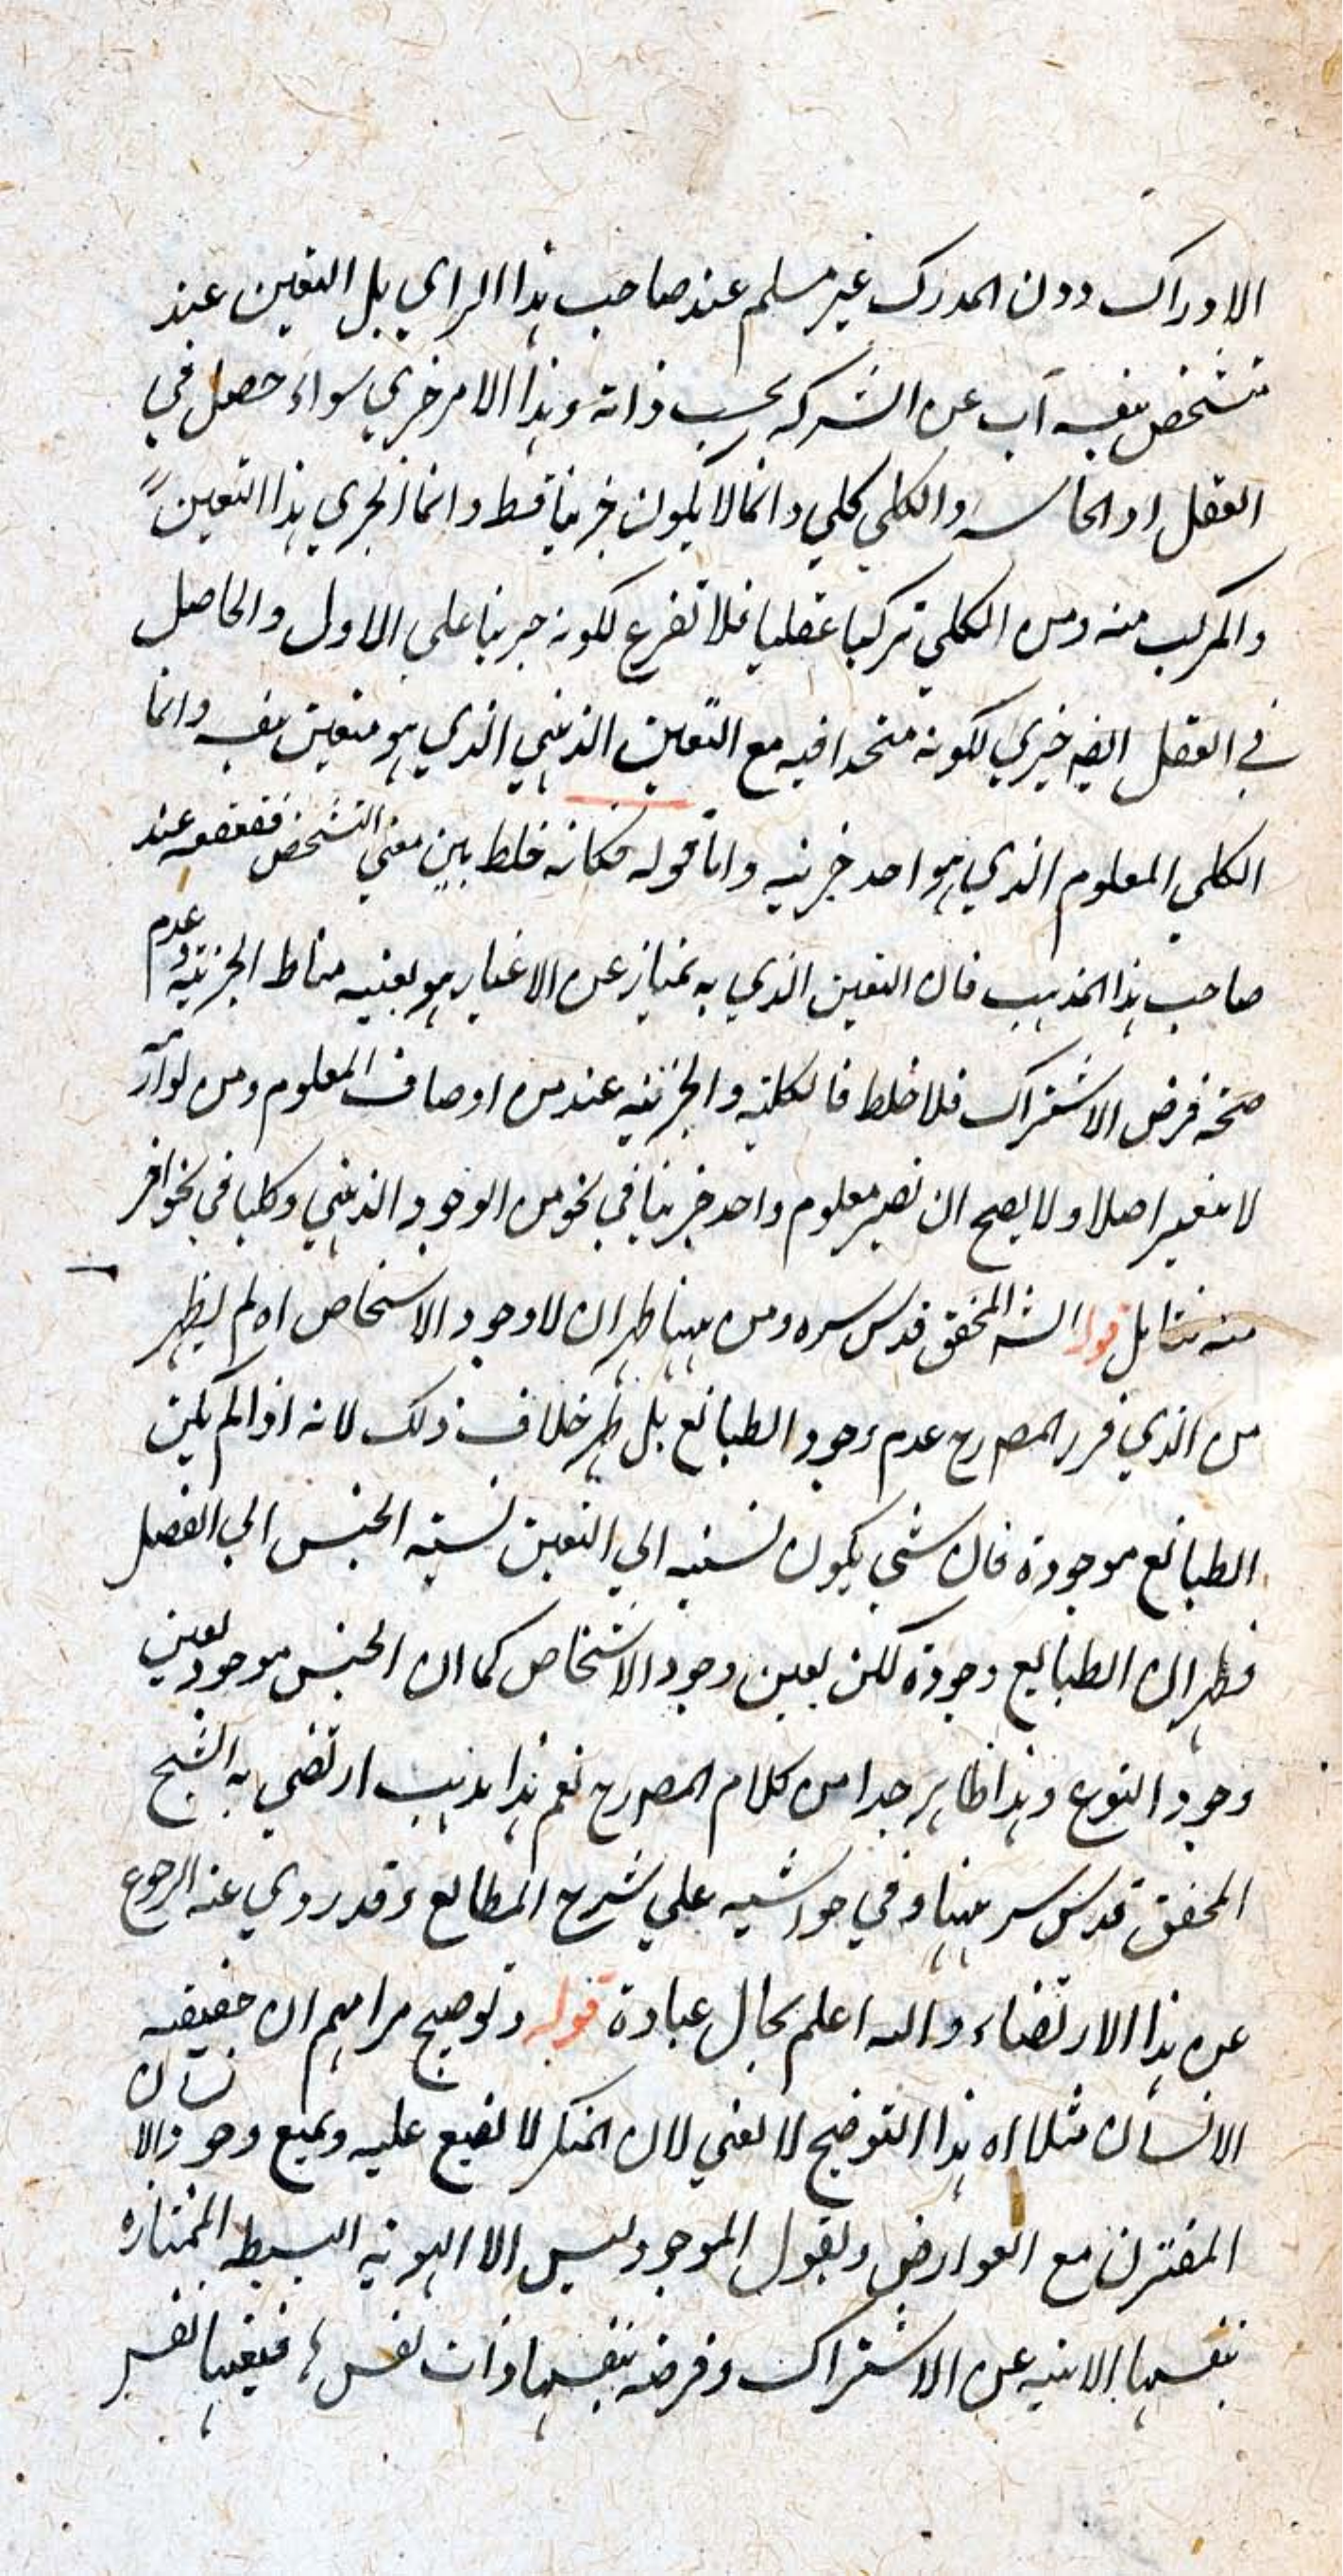 الادراك دون المدرك غير مسلم عند صاحب هذا الراي بل التعين عنده
متشخص بنفسه آب عن الشركه بحسب ذاته وهذا الامر جزئي سواء حصل في
العقل او الحاسه والكلي كلي دائما لا يكون جزئيا قط وانما الجزي هذا التعين
والمركب منه ومن الكلي تركيبا عقليا فلا تفرع لكونه جزئيا على الاول والحاصل
في العقل ايضه جزيي لكونه متحدا فيه مع التعين الذهني الذي هو متعين بنفسه وانما
الكلي المعلوم الذي هو احد جزئيه واما قوله فكانه خلط بين معني التشخص عند
صاحب هذا المذهب فان التعين الذي به تمتاز عن الاغيار هو بعينه مناط الجزئيه وعدم
صحة فرض الاشتراك فلا خلط فالكليه والجزئيه عنده من اوصاف المعلوم ومن لوازمه
لا يتغير اصلا ولا يصح ان تصير معلوم واحد جزئيا في نحو من الوجود الذهني وكليا في نحو اخر
منه فتامل قوله الشه المحقق قدس سره ومن ههنا ظهر ان لا وجود الا شخاص اه لم يظهر
من الذي قرر المصرح عدم وجود الطبائع بل ظهر خلاف ذلك لانه اذا لم يكن
الطبائع موجودة فاي شي يكون نسبته الي التعين نسبته الجنس الي الفصل
فظهر ان الطبائع وجودة لكن بعين وجود الاشخاص كما ان الجنس موجود بعين
وجود النوع وهذا ظاهر جدا من كلام المصرح نعم هذا مذهب ارتضي به الشيخ
المحقق قدس سر ههنا وفي حواشيه علي شرح المطالع وقد روي عنه الرجوع
عن هذا الارتضاء والله اعلم بحال عبادة قوله وتوضيح مرامهم ان حقيقه
الانسان مثلا اه هذا التوضيح لا يغني لان المنكر لا يقنع عليه ويمنع وجود الانسان
المقترن مع العوارض ويقول الموجود ليس الا الهويه البسيطه الممتازه
بنفسها الابيه عن الاشتراك وفرضه بنفسها وذات نفسها